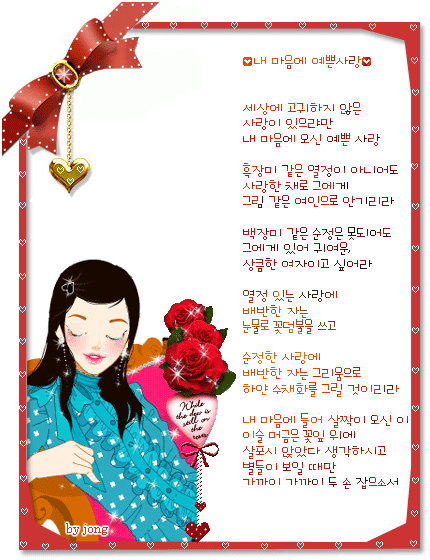 ♥내 마음에 예쁜사랑♥
세상에 고귀하지 않은
사랑이 있으랴만
내 마음에 오신 예쁜 사랑
흑장미 같은 열정이 아니어도
사랑한 채로 그에게
그림 같은 여인으로 안기리라
백장미 같은 순정은 못되어도
그에게 있어 귀여운,
상큼한 여자이고 싶어라
열정 있는 사랑에
배반한 자는
눈물로 꽃덤불을 쓰고
순정한 사랑에
배반한 자는 그리움으로
하얀 수채화를 그릴 것이리라
내 마음에 들어 살짝이 오신 이
이슬 머금은 꽃잎 위에
살포시 앉았다 생각하시고
별들이 보일 때만
가까이 가까이 두 손 잡으소서
While
the dew is
still on
the
roses
by jong